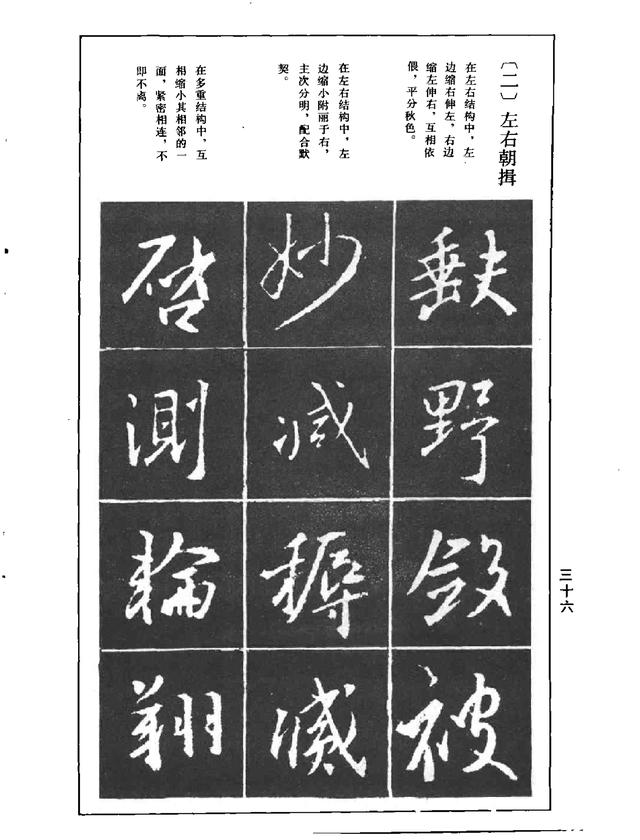 〔二〕左右朝揖
在左右结构中,左
边缩右伸左,右边
缩左伸右,互相依
偎,平分秋色。
在左右结构中,左
边缩小附丽于右,
主次分明,配合默
契。
在多重结构中,互
相缩小其相邻的一
面,紧密相连,不
即不离。
野
被
妙
减
耨
啓
測
輪
翔
三十六